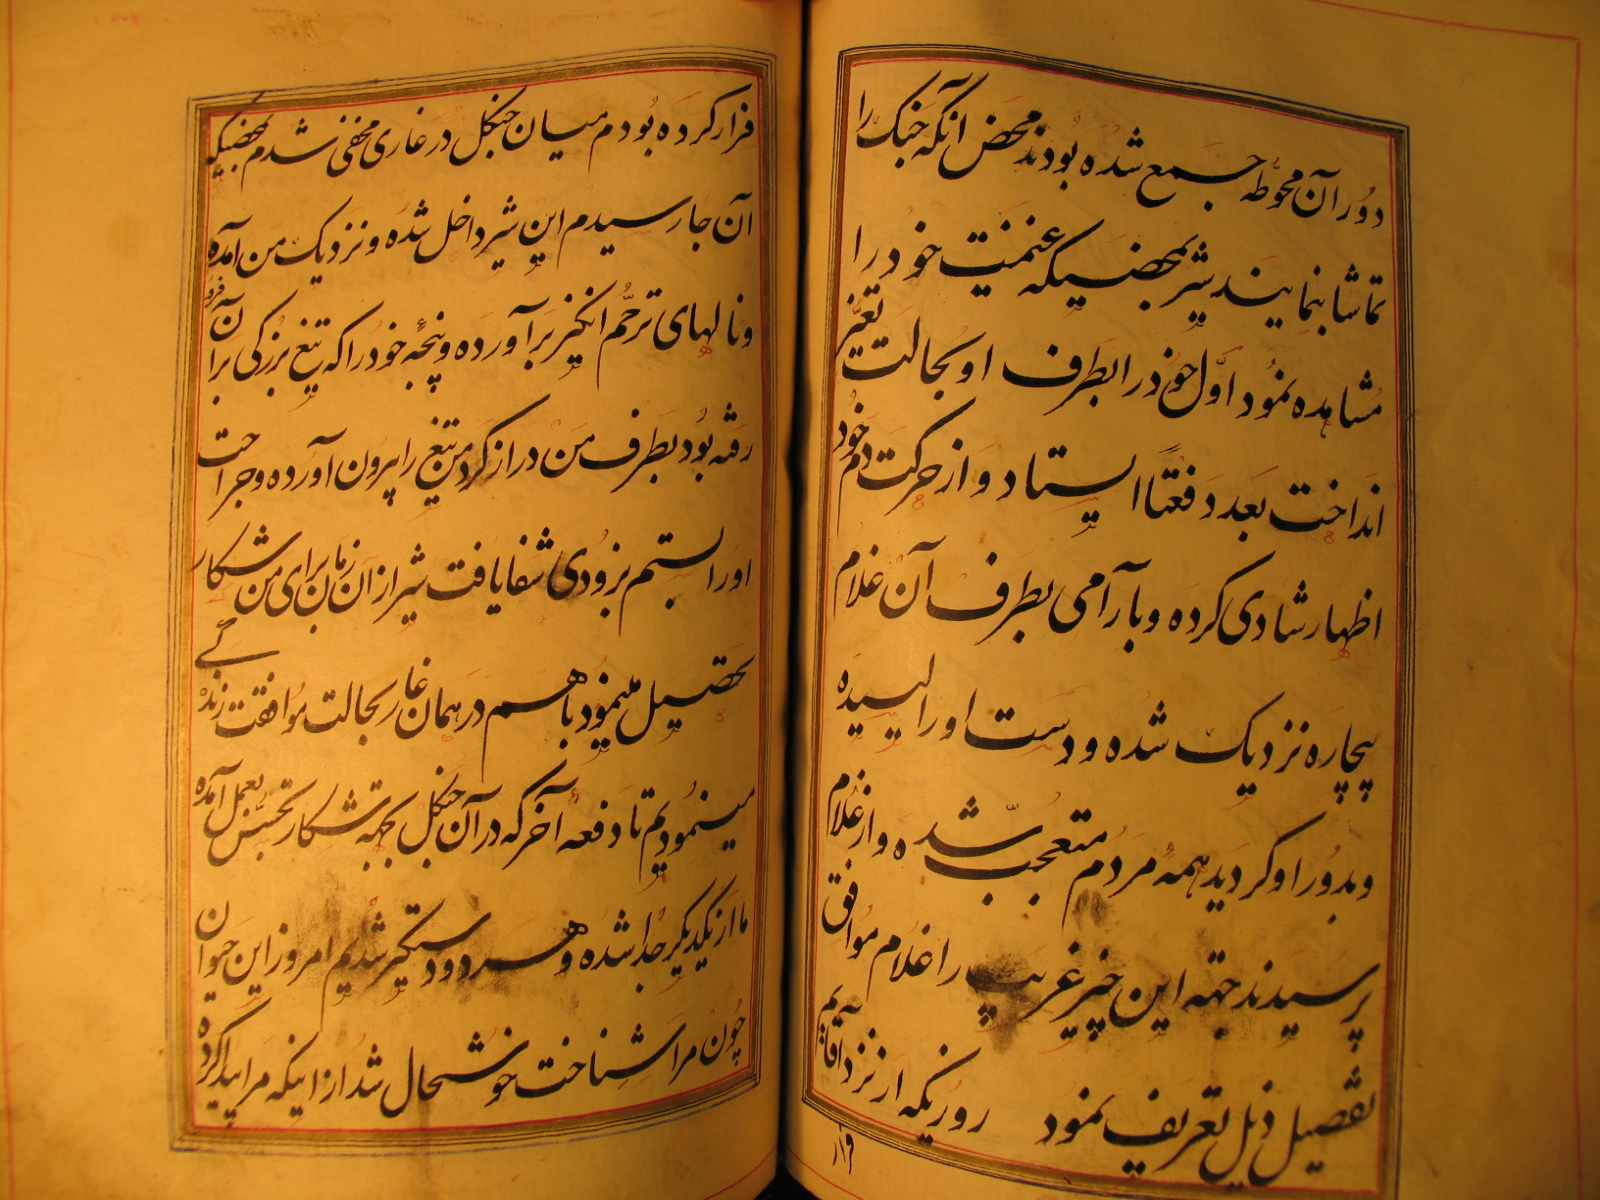 دور آن محوطه جمع شده بودند محض آنکه جنک را
تماشا بنمایند شیر بمحضیکه غنیمت خود را
مشاهده نمود اوّل خود را بطرف او بحالت تغیّر
انداخت بعد دفعتاً ایستاد و از حرکت دم خود
اظهار شادی کرده و بآرامی بطرف آن غلام
بیچاره نزدیک شده و دست او را لیسیده
و بدور او کردید همهٔ مردم متعجب شده و از غلام
پرسیدند جهته این چیز غریب را غلام موافق
تفصیل ذیل تعریف نمود روزیکه از نزد آقایم
۱۹
فرار کرده بودم میان جنکل در غاری مخفی شدم بمحضیکه
آن جا رسیدم این شیر داخل شده و نزدیک من آمده
و نالهای ترحّم انکیز برآورده و پنجهٔ خود را که تیغ بزرکی بر آن فرو
رفته بود بطرف من دراز کرد من تیغ را بیرون آورده و جراحت
او را بستم بزودی شفا یافت شیر از آن زمان برای من شکار
تحصیل مینمود باهم در همان غار بحالت موافقت زندکی
مینمودیم تا دفعه آخر که در آن جنکل بجهته شکار تجسّس بعمل آمده
ما از یکدیکر جدا شده و هر دو دستکیر شدیم امروز این حیوان
چون مرا شناخت خوشحال شد از اینکه مرا پیدا کرده